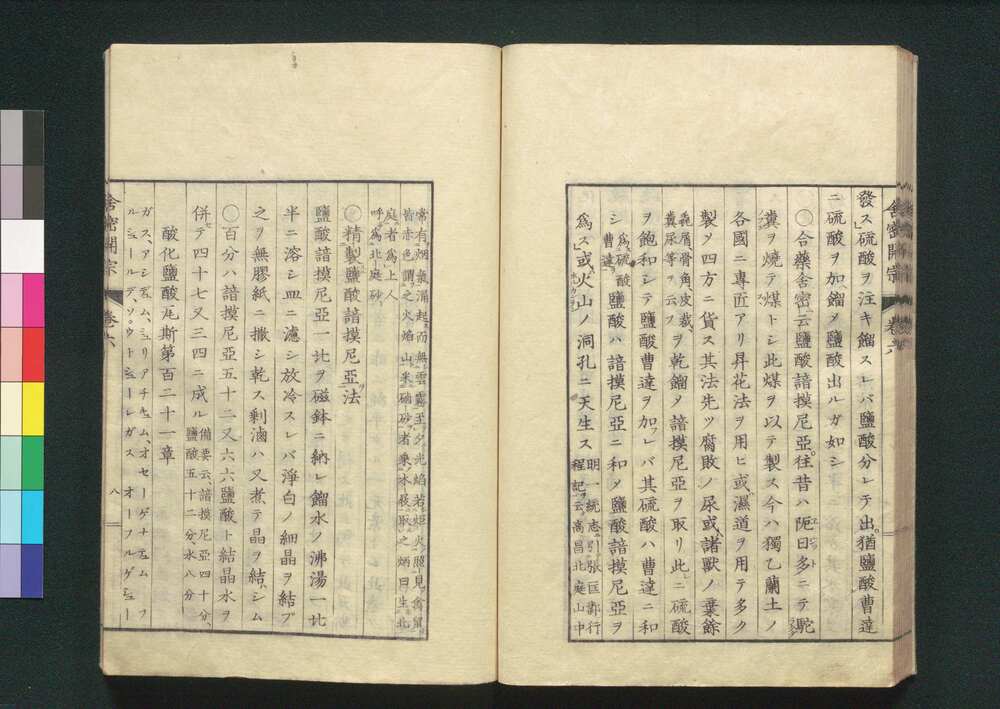 舎密開宗 卷六
發ス」硫酸ヲ注キ餾スレバ鹽酸分レテ出。猶鹽酸曹達
ニ硫酸ヲ加餾メ鹽酸出ルガ如シ
○合藥舎密云鹽酸諳摸尼亞往昔ハ阨日多ニテ駝
糞ヲ焼テ煤トシ此煤ヲ以テ製ス今ハ獨乙蘭土ノ
各國ニ專匠アリ昇花法ヲ用ヒ或濕道ヲ用テ多ク
製ソ四方ニ貨ス其法先ツ腐敗ノ尿或諸獸ノ棄餘
毳屑骨角、皮裁、糞尿等ヲ云フヲ乾餾メ諳摸尼亞ヲ取リ此ニ硫酸
ヲ飽和シテ鹽酸曹達ヲ加フレバ其硫酸ハ曹達ニ和
シ爲硫酸曹達鹽酸ハ諳摸尼亞ニ和メ鹽酸諳摸尼亞ヲ
爲ス」或火山ノ洞孔ニ天生ス明一統志引張匡鄴行程記云高昌北庭山中
常有烟氣涌起而無雲霧至夕光焰若炬火照見禽鼠
皆赤色謂之火焰山采硇砂者乗木屐取之炳曰生北
庭者爲上人呼爲北庭砂
○精製鹽酸諳摸尼亞法
鹽酸諳摸尼亞一比ヲ磁鉢ニ納レ餾水ノ沸湯一比
半ニ溶シ皿ニ濾シ放冷スレバ淨白ノ細晶ヲ結ブ
之ヲ無膠紙ニ撒シ乾ス剰滷ハ又煮テ晶ヲ結シム
○百分ハ諳摸尼亞五十二又六六鹽酸ト結晶水ヲ
併テ四十七又三四ニ成ル備要云、諳摸尼亞四十分、鹽酸五十二分水八分
酸化鹽酸瓦斯第百二十一章
ガス、アシデュム、ミュリアチキュム、オセーゲナチュム フ
ルシュールデ、ソウトシューレガス オーフルゲシュー
舎密開宗 卷六 八